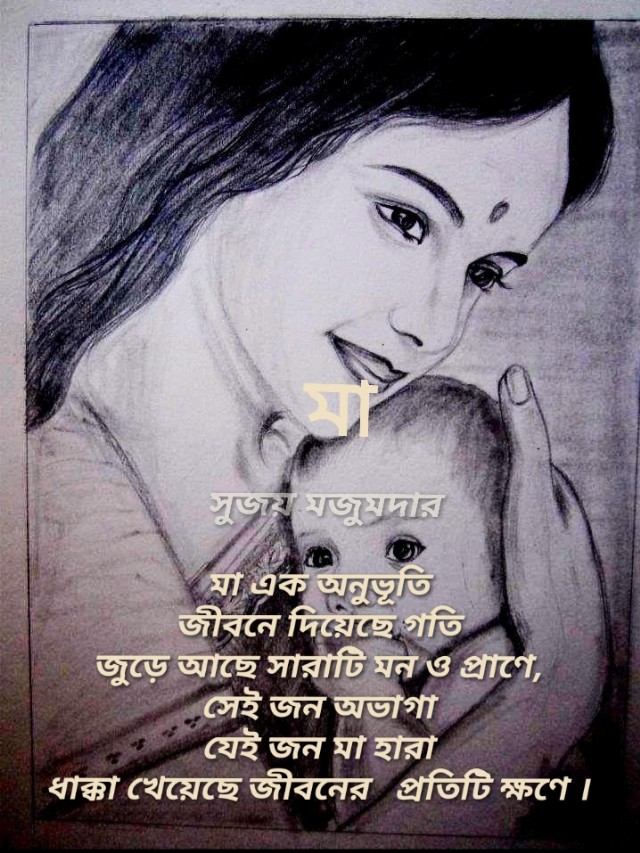 মা
সুজয় মজুমদার
মা এক অনুভূতি
জীবনে দিয়েছে গতি
জুড়ে আছে সারাটি মন ও প্রাণে,
সেই জন অভাগা
যেই জন মা হারা
ধাক্কা খেয়েছে জীবনের প্রতিটি ক্ষণে ।